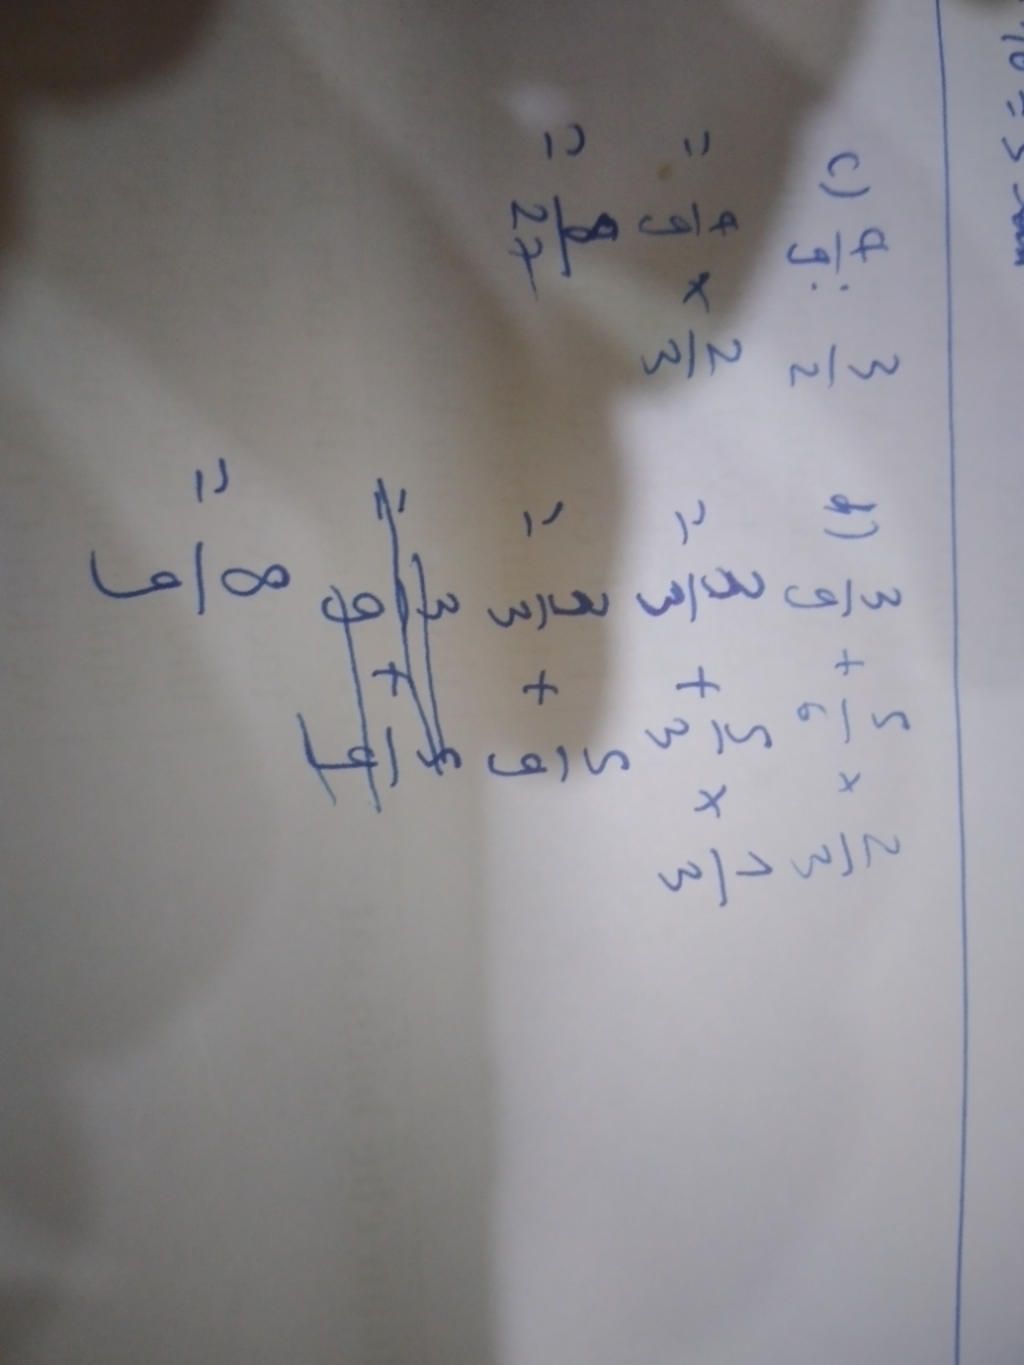 c) 4/9 : 3/2
= 4/9 × 2/3
= 8/27
d) 3/9 + 5/6 × 2/3
= 3/3 + 5/3 × 1/3
= 3/3 + 5/9
= 3/9 + 5/9
= 8/9